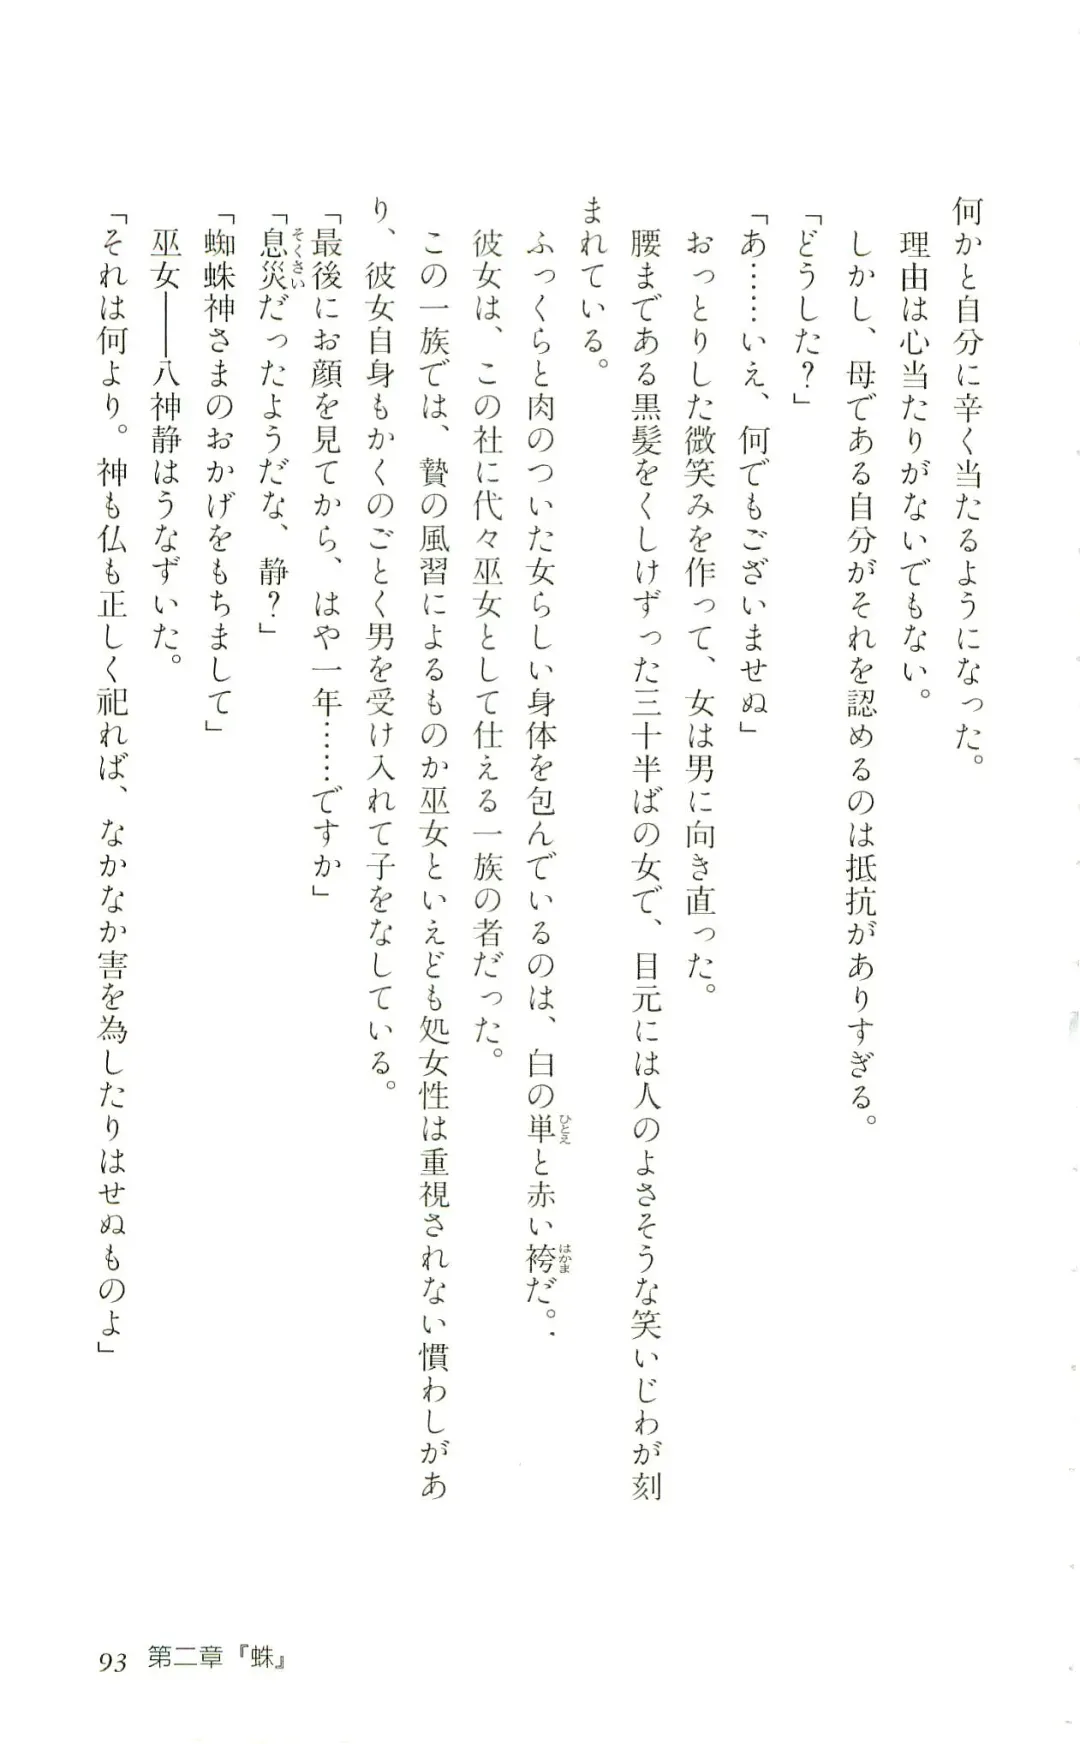 何かと自分に辛く当たるようになった。
理由は心当たりがないでもない。
しかし、母である自分がそれを認めるのは抵抗がありすぎる。
「どうした？」
「あ……いえ、何でもございませぬ」
おっとりした微笑みを作って、女は男に向き直った。
腰まである黒髪をくしけずった三十半ばの女で、目元には人のよさそうな笑いじわが刻
まれている。
ふっくらと肉のついた女らしい身体を包んでいるのは、白の単と赤い袴だ。
ひとえ
はかま
彼女は、この社に代々巫女として仕える一族の者だった。
この一族では、贄の風習によるものか巫女といえども処女性は重視されない慣わしがあ
り、彼女自身もかくのごとく男を受け入れて子をなしている。
「最後にお顔を見てから、はや一年……ですか」
「息災だったようだな、静？」
そくさい
「蜘蛛神さまのおかげをもちまして」
巫女――八神静はうなずいた。
「それは何より。神も仏も正しく祀れば、なかなか害を為したりはせぬものよ」
93 第二章『蛛』